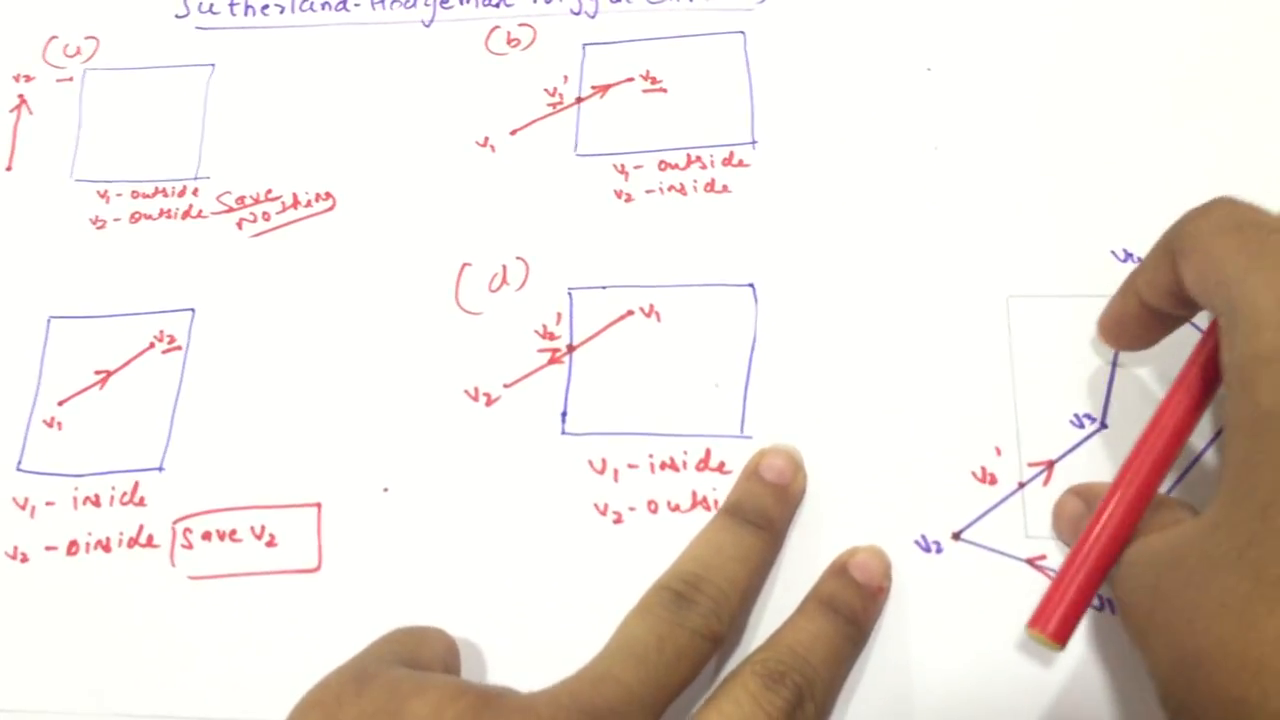 Sutherland-Hodgeman
(a)
v2
v1 - outside
v2 - outside
Save
Nothing
(b)
v1'
v2
v1
v1 - outside
v2 - inside
v2
v1
v1 - inside
v2 - inside
Save v2
(d)
v2'
v1
v2
v1 - inside
v2 - outsi
v3
v2'
v2
v1